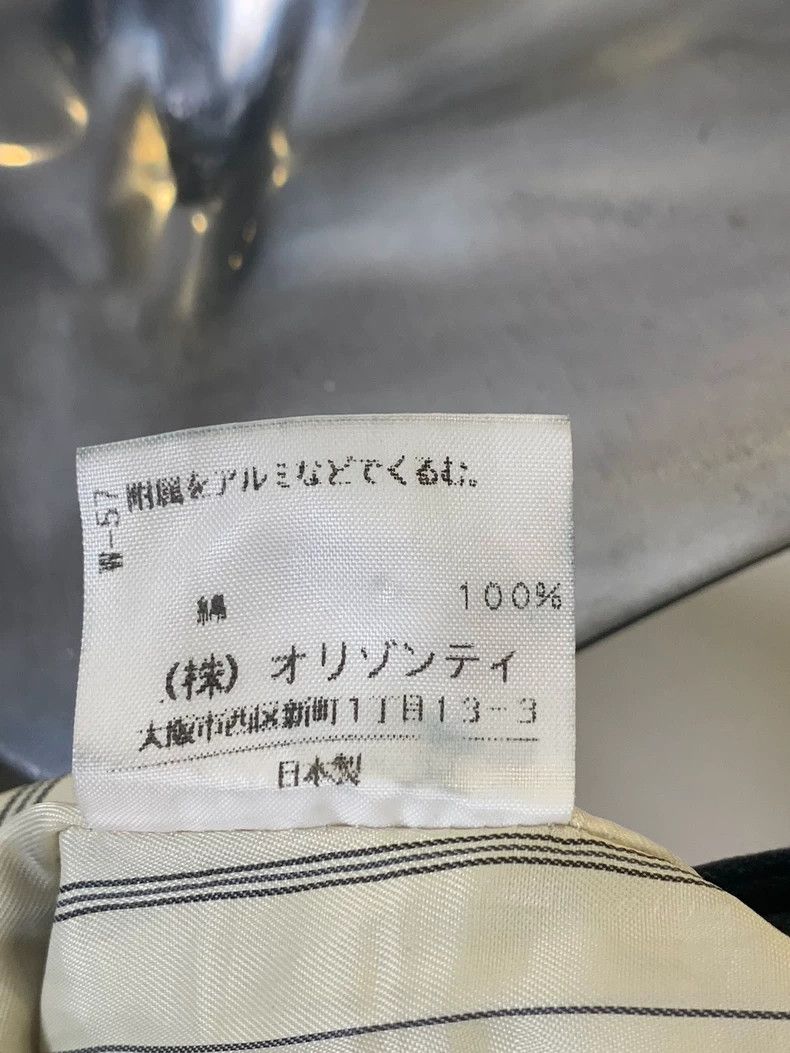 附属をアルミなどでくるむ。
W-57
綿 100%
(株) オリゾンティ
大阪市西区新町1丁目13-3
日本製